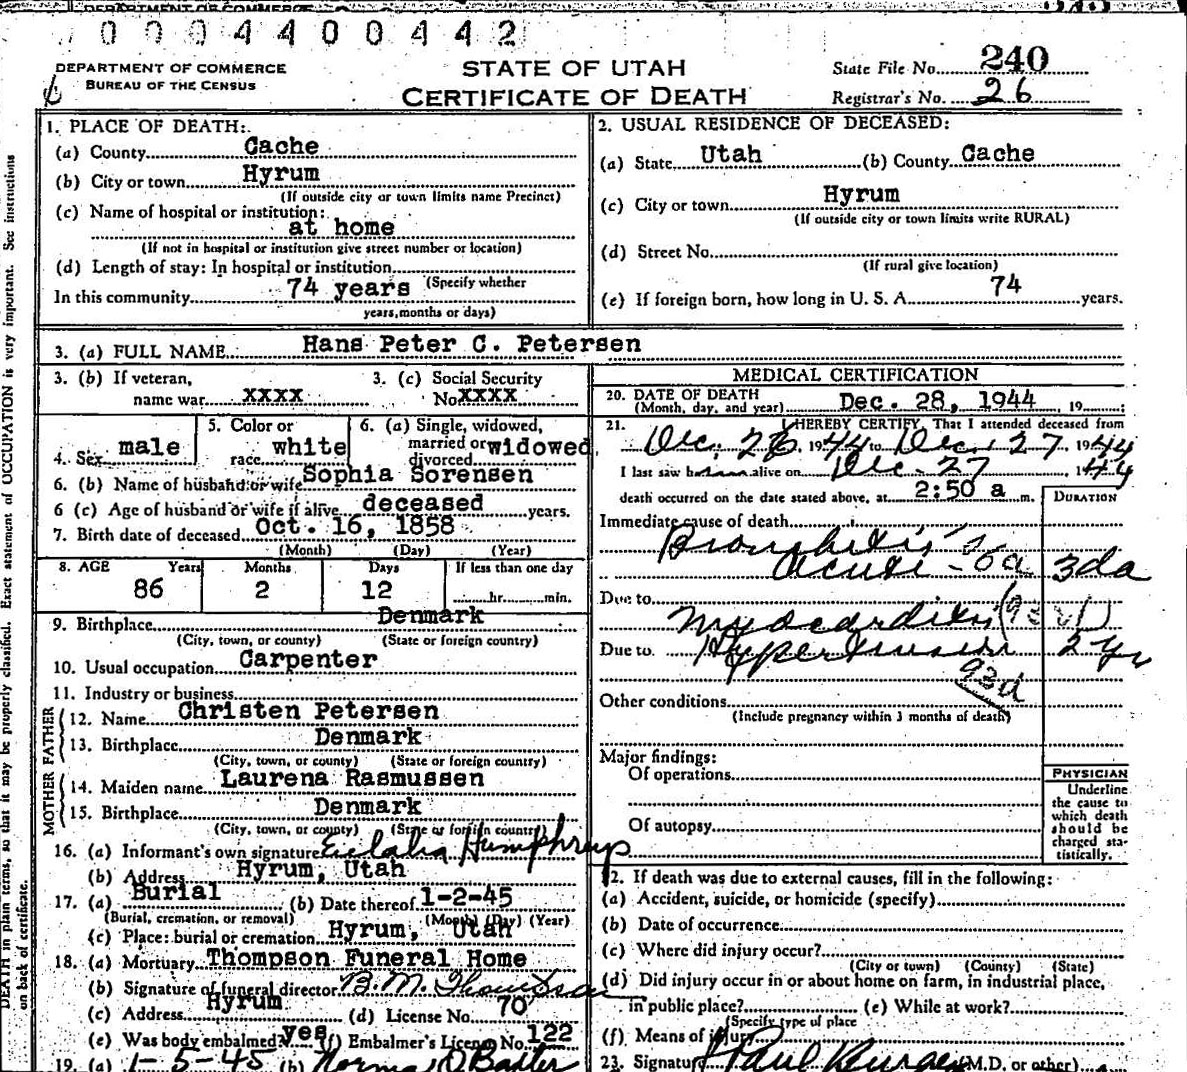 DEPARTMENT OF COMMERCE
0 0 0 4 4 0 0 4 4 2
DEPARTMENT OF COMMERCE
BUREAU OF THE CENSUS
STATE OF UTAH
CERTIFICATE OF DEATH
State File No. 240
Registrar's No. 26
1. PLACE OF DEATH:
(a) County Cache
(b) City or town Hyrum
(If outside city or town limits name Precinct)
(c) Name of hospital or institution:
at home
(If not in hospital or institution give street number or location)
(d) Length of stay: In hospital or institution
(Specify whether
In this community 74 years
years, months or days)
2. USUAL RESIDENCE OF DECEASED:
(a) State Utah (b) County Cache
(c) City or town Hyrum
(If outside city or town limits write RURAL)
(d) Street No.
(If rural give location)
(e) If foreign born, how long in U. S. A. 74 years.
3. (a) FULL NAME Hans Peter C. Petersen
3. (b) If veteran,
name war xxxx
3. (c) Social Security
No. xxxx
4. Sex male
5. Color or
race white
6. (a) Single, widowed,
married or widowed
divorced
6. (b) Name of husband or wife Sophia Sorensen
6 (c) Age of husband or wife if alive deceased years.
7. Birth date of deceased Oct. 16, 1858
(Month) (Day) (Year)
8. AGE Years Months Days If less than one day
86 2 12 hr. min.
9. Birthplace Denmark
(City, town, or county) (State or foreign country)
10. Usual occupation Carpenter
11. Industry or business
FATHER
12. Name Christen Petersen
13. Birthplace Denmark
(City, town, or county) (State or foreign country)
MOTHER
14. Maiden name Laurena Rasmussen
15. Birthplace Denmark
(City, town, or county) (State or foreign country)
16. (a) Informant's own signature Eulalia Humphreys
(b) Address Hyrum, Utah
17. (a) Burial (b) Date thereof 1-2-45
(Burial, cremation, or removal) (Month) (Day) (Year)
(c) Place: burial or cremation Hyrum, Utah
18. (a) Mortuary Thompson Funeral Home
(b) Signature of funeral director B. M. Thompson
(c) Address Hyrum (d) License No. 70
(e) Was body embalmed? yes (f) Embalmer's License No. 122
19. (a) 1-5-45 (b) Norma O Baxter
MEDICAL CERTIFICATION
20. DATE OF DEATH
(Month, day, and year) Dec. 28, 1944, 19
21. I HEREBY CERTIFY, That I attended deceased from
Dec. 26 1944 to Dec. 27 1944
I last saw him alive on Dec - 27 1944
death occurred on the date stated above, at 2:50 a m.
DURATION
Immediate cause of death
Bronchitis
acute - 3 da
Due to
Myocarditis
Due to Hypertension 2 yr
93d
Other conditions
(Include pregnancy within 3 months of death)
Major findings:
Of operations
Of autopsy
PHYSICIAN
Underline
the cause to
which death
should be
charged sta-
tistically.
22. If death was due to external causes, fill in the following:
(a) Accident, suicide, or homicide (specify)
(b) Date of occurrence
(c) Where did injury occur?
(City or town) (County) (State)
(d) Did injury occur in or about home on farm, in industrial place,
in public place? (e) While at work?
(Specify type of place
(f) Means of injury
23. Signature Paul Burgess (M.D. or other)
DEATH in plain terms, so that it may be properly classified. Exact statement of OCCUPATION is very important. See instructions
on back of certificate.